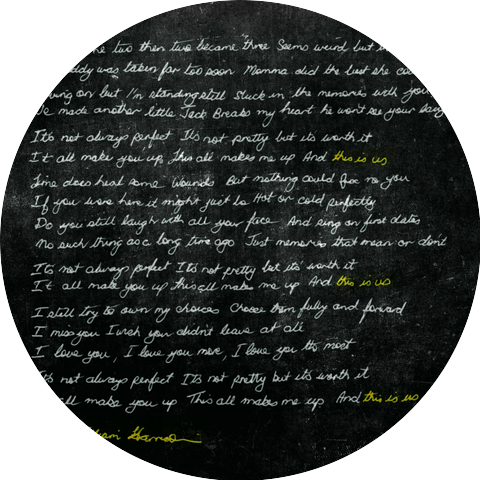 two then two became three Seems weird but
was taken far too soon Momma did the best she
on but I'm standing still Stuck in the memories with you
made another little Jack Breaks my heart he won't see your
It's not always perfect It's not pretty but it's worth it
It all make you up, this all makes me up And this is us
Time does heal some wounds But nothing could for you
If you were here it might just be Hot or cold perfectly
Do you still laugh with all your face And sing on first dates
No such thing as a long time ago Just memories that mean or don't
It's not always perfect It's not pretty but it's worth it
It all make you up this all makes me up And this is us
I still try to own my choices Choose them fully and forward
I miss you I wish you didn't leave at all
I love you, I love you more, I love you the most
It's not always perfect It's not pretty but it's worth it
all make you up This all makes me up And this is us